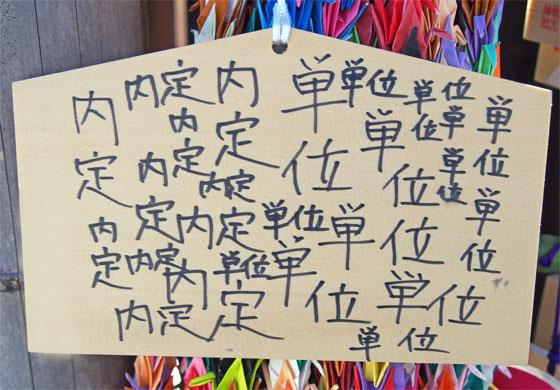 単位
単位
単位
単位
単位
単位
単位
単位
単位
単位
単位
単位
単位
単位
内定
内定
内定
内定
内定
内定
内定
内定
内定
内定
内定